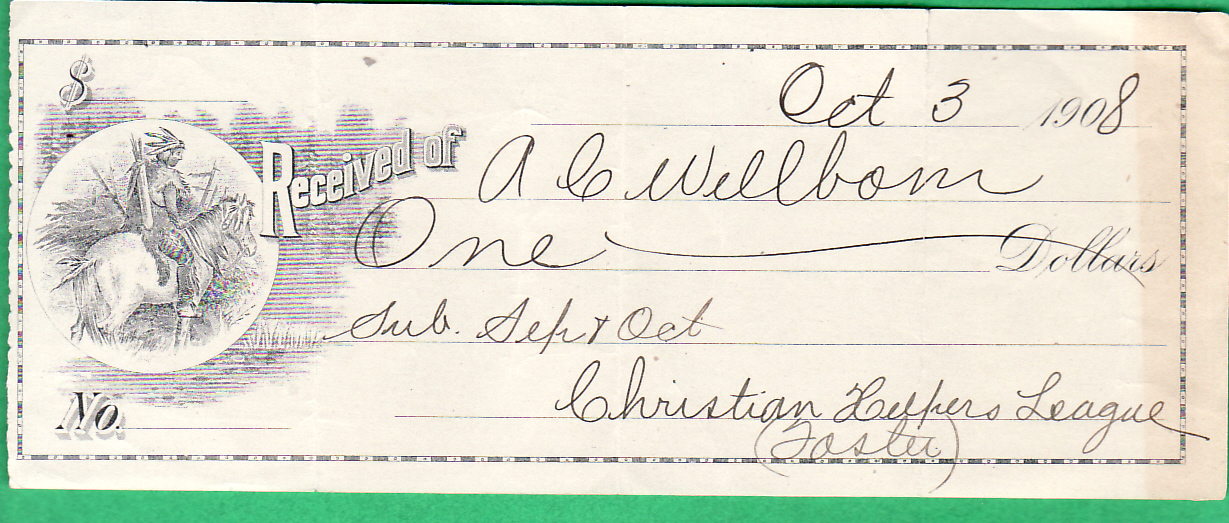 $
Oct 3 1908
Received of A C Wellborn
One Dollars
Sub. Sep & Oct
No.
Christian Helpers League
(Foster)